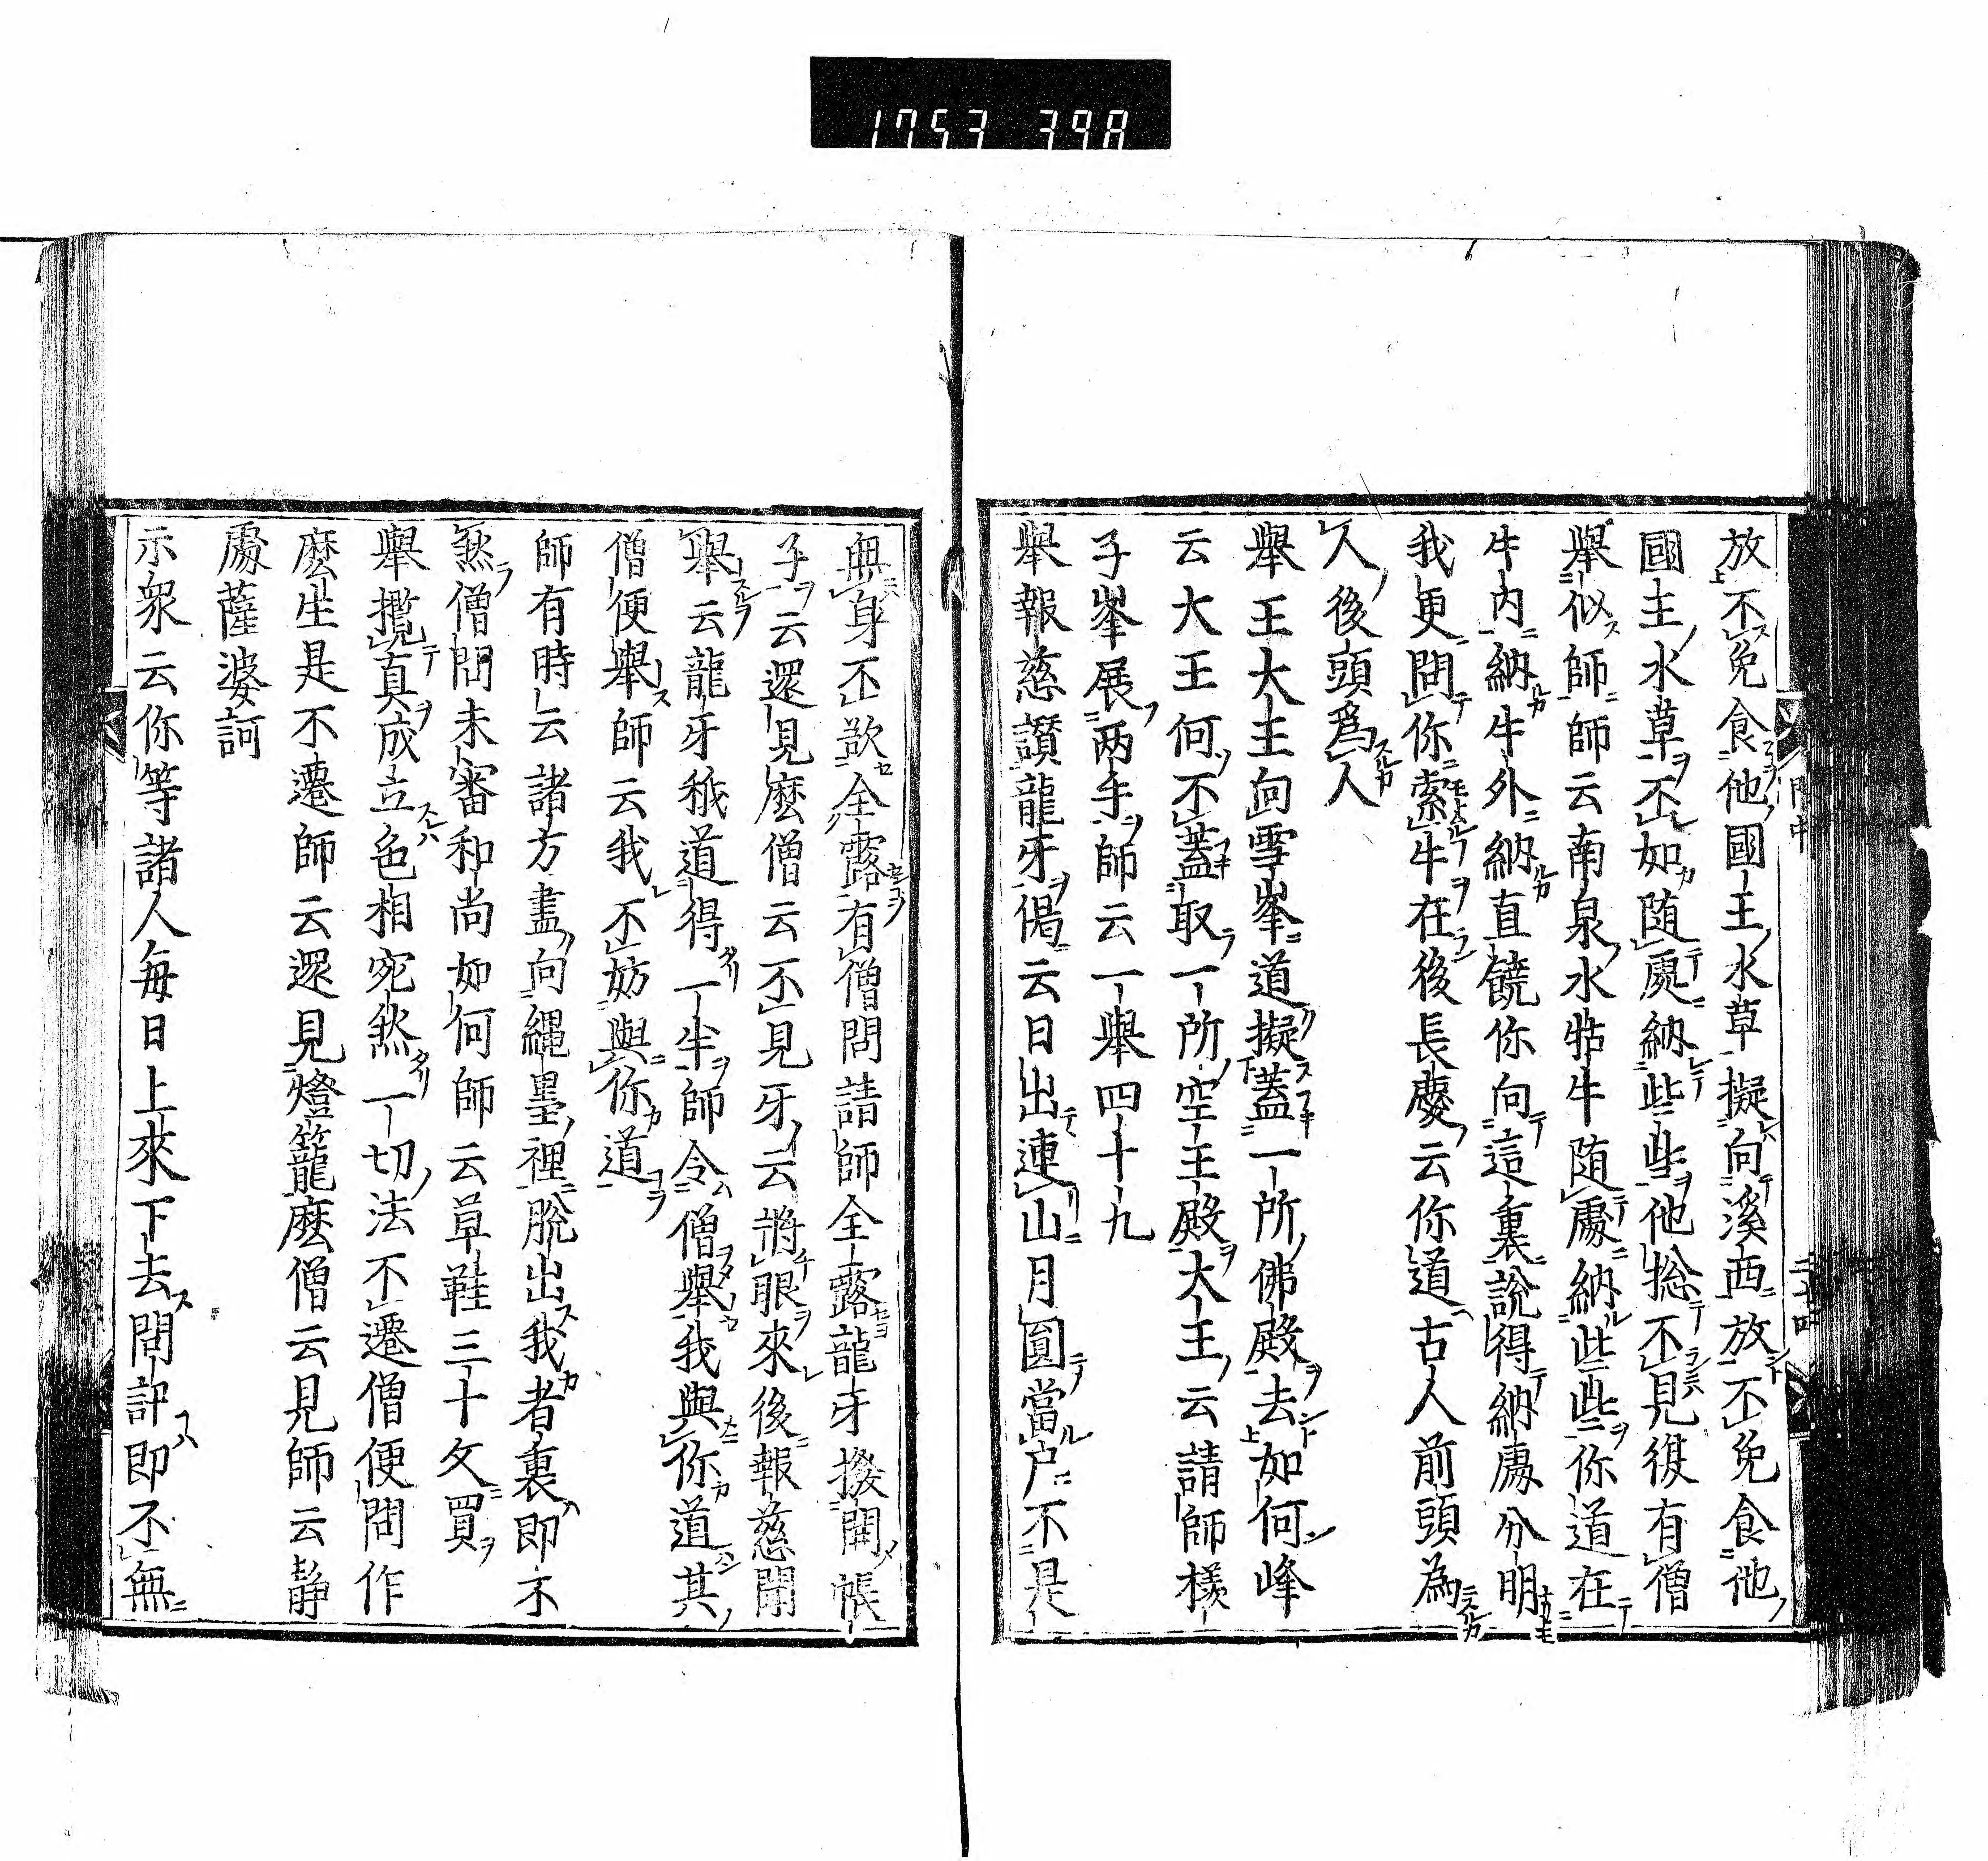 1753 39A
放不免食他國王水草擬向溪西放不免食他
國主水草不如随處納些些他捴不見得有僧
舉似師師云南泉水牯牛随處納些些你道在
牛内納牛外納直饒你向這裏説得納處分明
我更問你索牛在後長慶云你道古人前頭為
人後頭爲人
舉王大王向雪峯道擬蓋一所佛殿去如何峰
云大王何不蓋取一所空王殿大王云請師樣
子峯展两手師云一舉四十九
舉報慈讃龍牙偈云日出連山月圓當户不是
無身不欲全露有僧問請師全露龍牙撥開帳
子云還見麽僧云不見牙云將眼來後報慈聞
舉云龍牙秪道得一半師令僧舉我與你道其
僧便舉師云我不妨與你道
師有時云諸方盡向繩墨裡脱出我者裏即不
然僧問未審和尚如何師云草鞋三十文買
舉攬真成立色相宛然一切法不遷僧便問作
麽生是不遷師云還見燈籠麽僧云見師云静
處薩婆訶
示衆云你等諸人每日上來下去問訊即不無